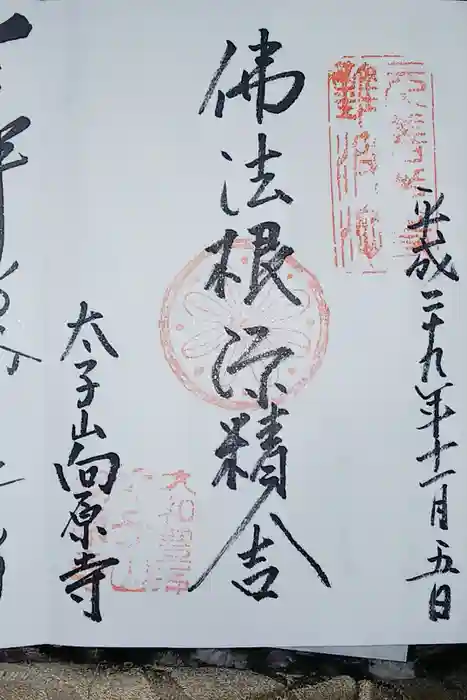 平成二十九年十一月五日
難波池
佛法根源精舎
太子山向原寺